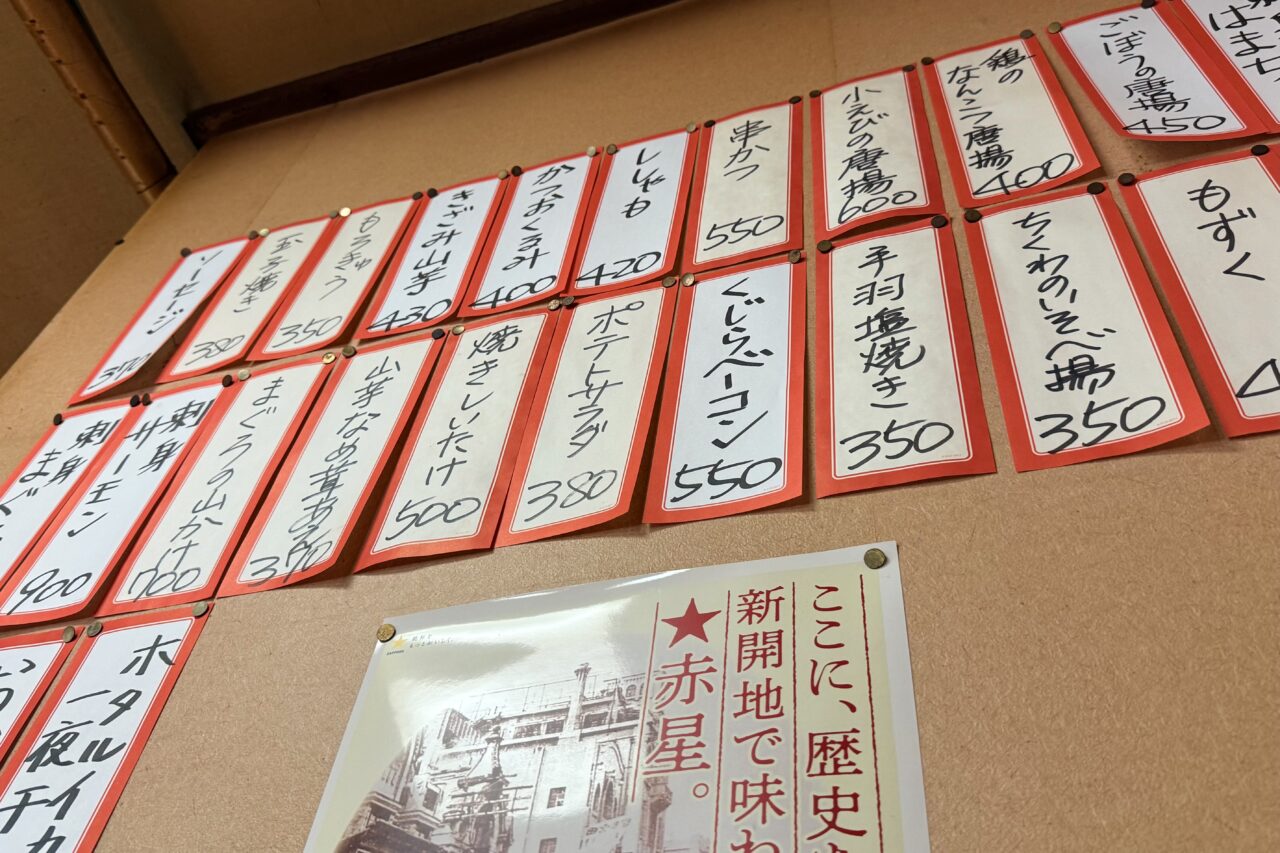 はまち
ごぼうの唐揚
450
鶏の
なんこつ唐揚
400
小えびの唐揚
600
串かつ
550
ししゃも
420
かつおくるみ
400
きざみ山芋
430
もろきゅう
350
玉子焼き
380
ソーセージ
370
もずく
ちくわのいそべ揚
350
手羽塩焼き
350
くじらベーコン
550
ポテトサラダ
380
焼きしいたけ
500
山芋なめ茸あえ
370
まぐろの山かけ
700
刺身
サーモン
900
刺身
まぐ
ホタルイカ
一夜干
ここに、歴史
新開地で味わ
★赤星。
SAPPORO